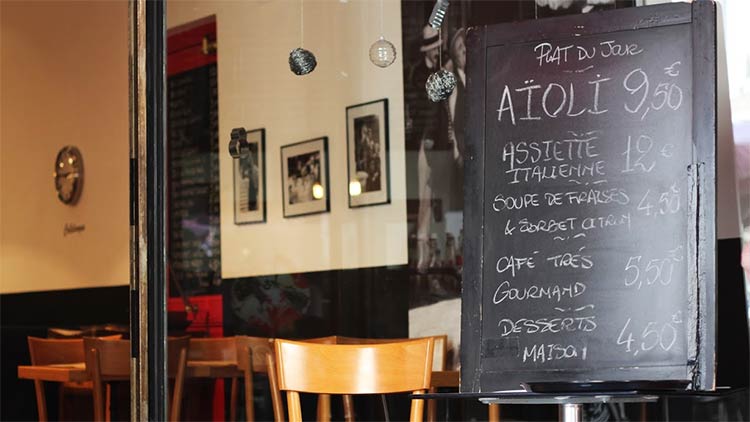 PLAT DU JOUR
AÏOLI 9,50€
ASSIETTE
ITALIENNE 12€
SOUPE DE FRAISES
& SORBET CITRON 4,50€
CAFÉ TRÉS
GOURMAND 5,50€
DESSERTS
MAISON 4,50€